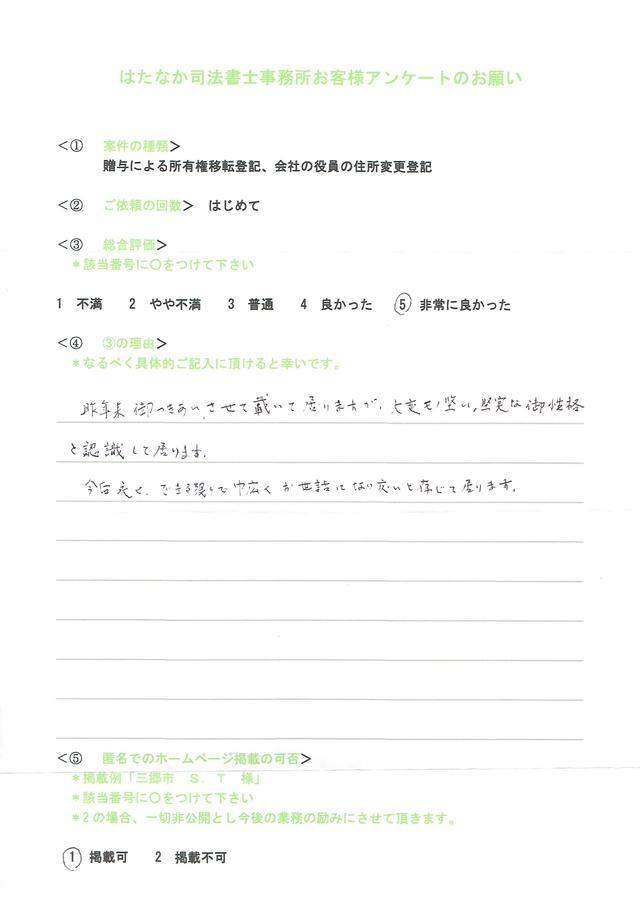 はたなか司法書士事務所お客様アンケートのお願い
<① 案件の種類>
贈与による所有権移転登記、会社の役員の住所変更登記
<② ご依頼の回数> はじめて
<③ 総合評価>
*該当番号に○をつけて下さい
1 不満 2 やや不満 3 普通 4 良かった ⑤ 非常に良かった
<④ ③の理由>
*なるべく具体的ご記入に頂けると幸いです。
昨年来御つきあいさせて戴いて居りますが、大変モノ堅い、堅実な御性格
と認識して居ります。
今后永く、できる限りで巾広くお世話になり度いと存じて居ります。
<⑤ 匿名でのホームページ掲載の可否>
*掲載例「三郷市 S.T 様」
*該当番号に○をつけて下さい
*2の場合、一切非公開とし今後の業務の励みにさせて頂きます。
① 掲載可 2 掲載不可